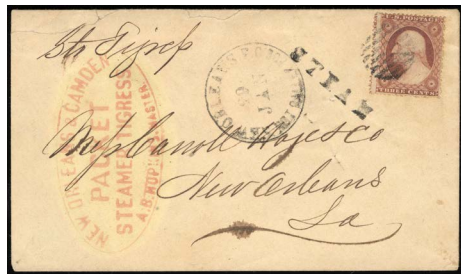 Str Tigress
NEW ORLEANS & CAMDEN
PACKET
STEAMER TIGRESS
A.B. MASTER
NEW ORLEANS
29
JAN
STEAM
U.S. POSTAGE
THREE CENTS
Mess Carroll Hoy & Co
New Orleans
La